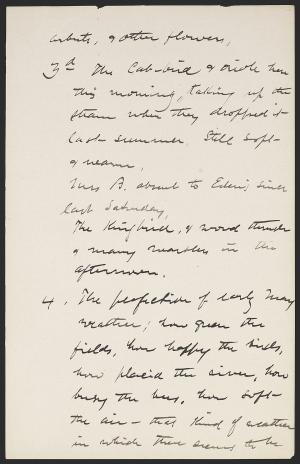 arbutus, & other flowers,
3d The Cat-bird & oriole here
this morning, taking up the
strain where they dropped it
last summer. Still soft
& warm,
Mrs B. absent to Eden's since
last Saturday,
The Kingbird, & wood thrush
& many warblers in the
afternoon.
4. The perfection of early May
weather; how green the
fields, how happy the birds,
how placid the river, how
busy the bees, how soft
the air – that kind of weather
in which there seems to be